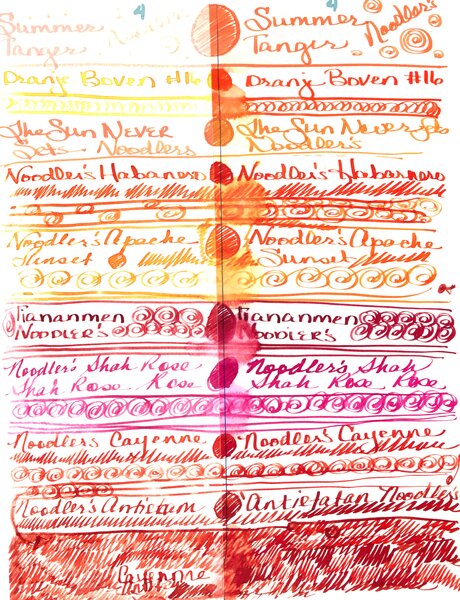 4
4
Summer
Tanger
Noodler's
Summer
Tanger
Noodler's
Oranje Boven #16
Oranje Boven #16
The Sun Never
Sets Noodlers
The Sun Never Sets
Noodler's
Noodler's Habanero
Noodler's Habanero
Noodler's Apache
Sunset
Noodler's Apache
Sunset
Tiananmen
Noodler's
Tiananmen
Noodler's
Noodler's Shah Rose
Shah Rose Rose
Noodler's Shah
Shah Rose Rose
Noodler's Cayenne
Noodler's Cayenne
Noodler's Antietam
Antietatan Noodlers
Cayenne